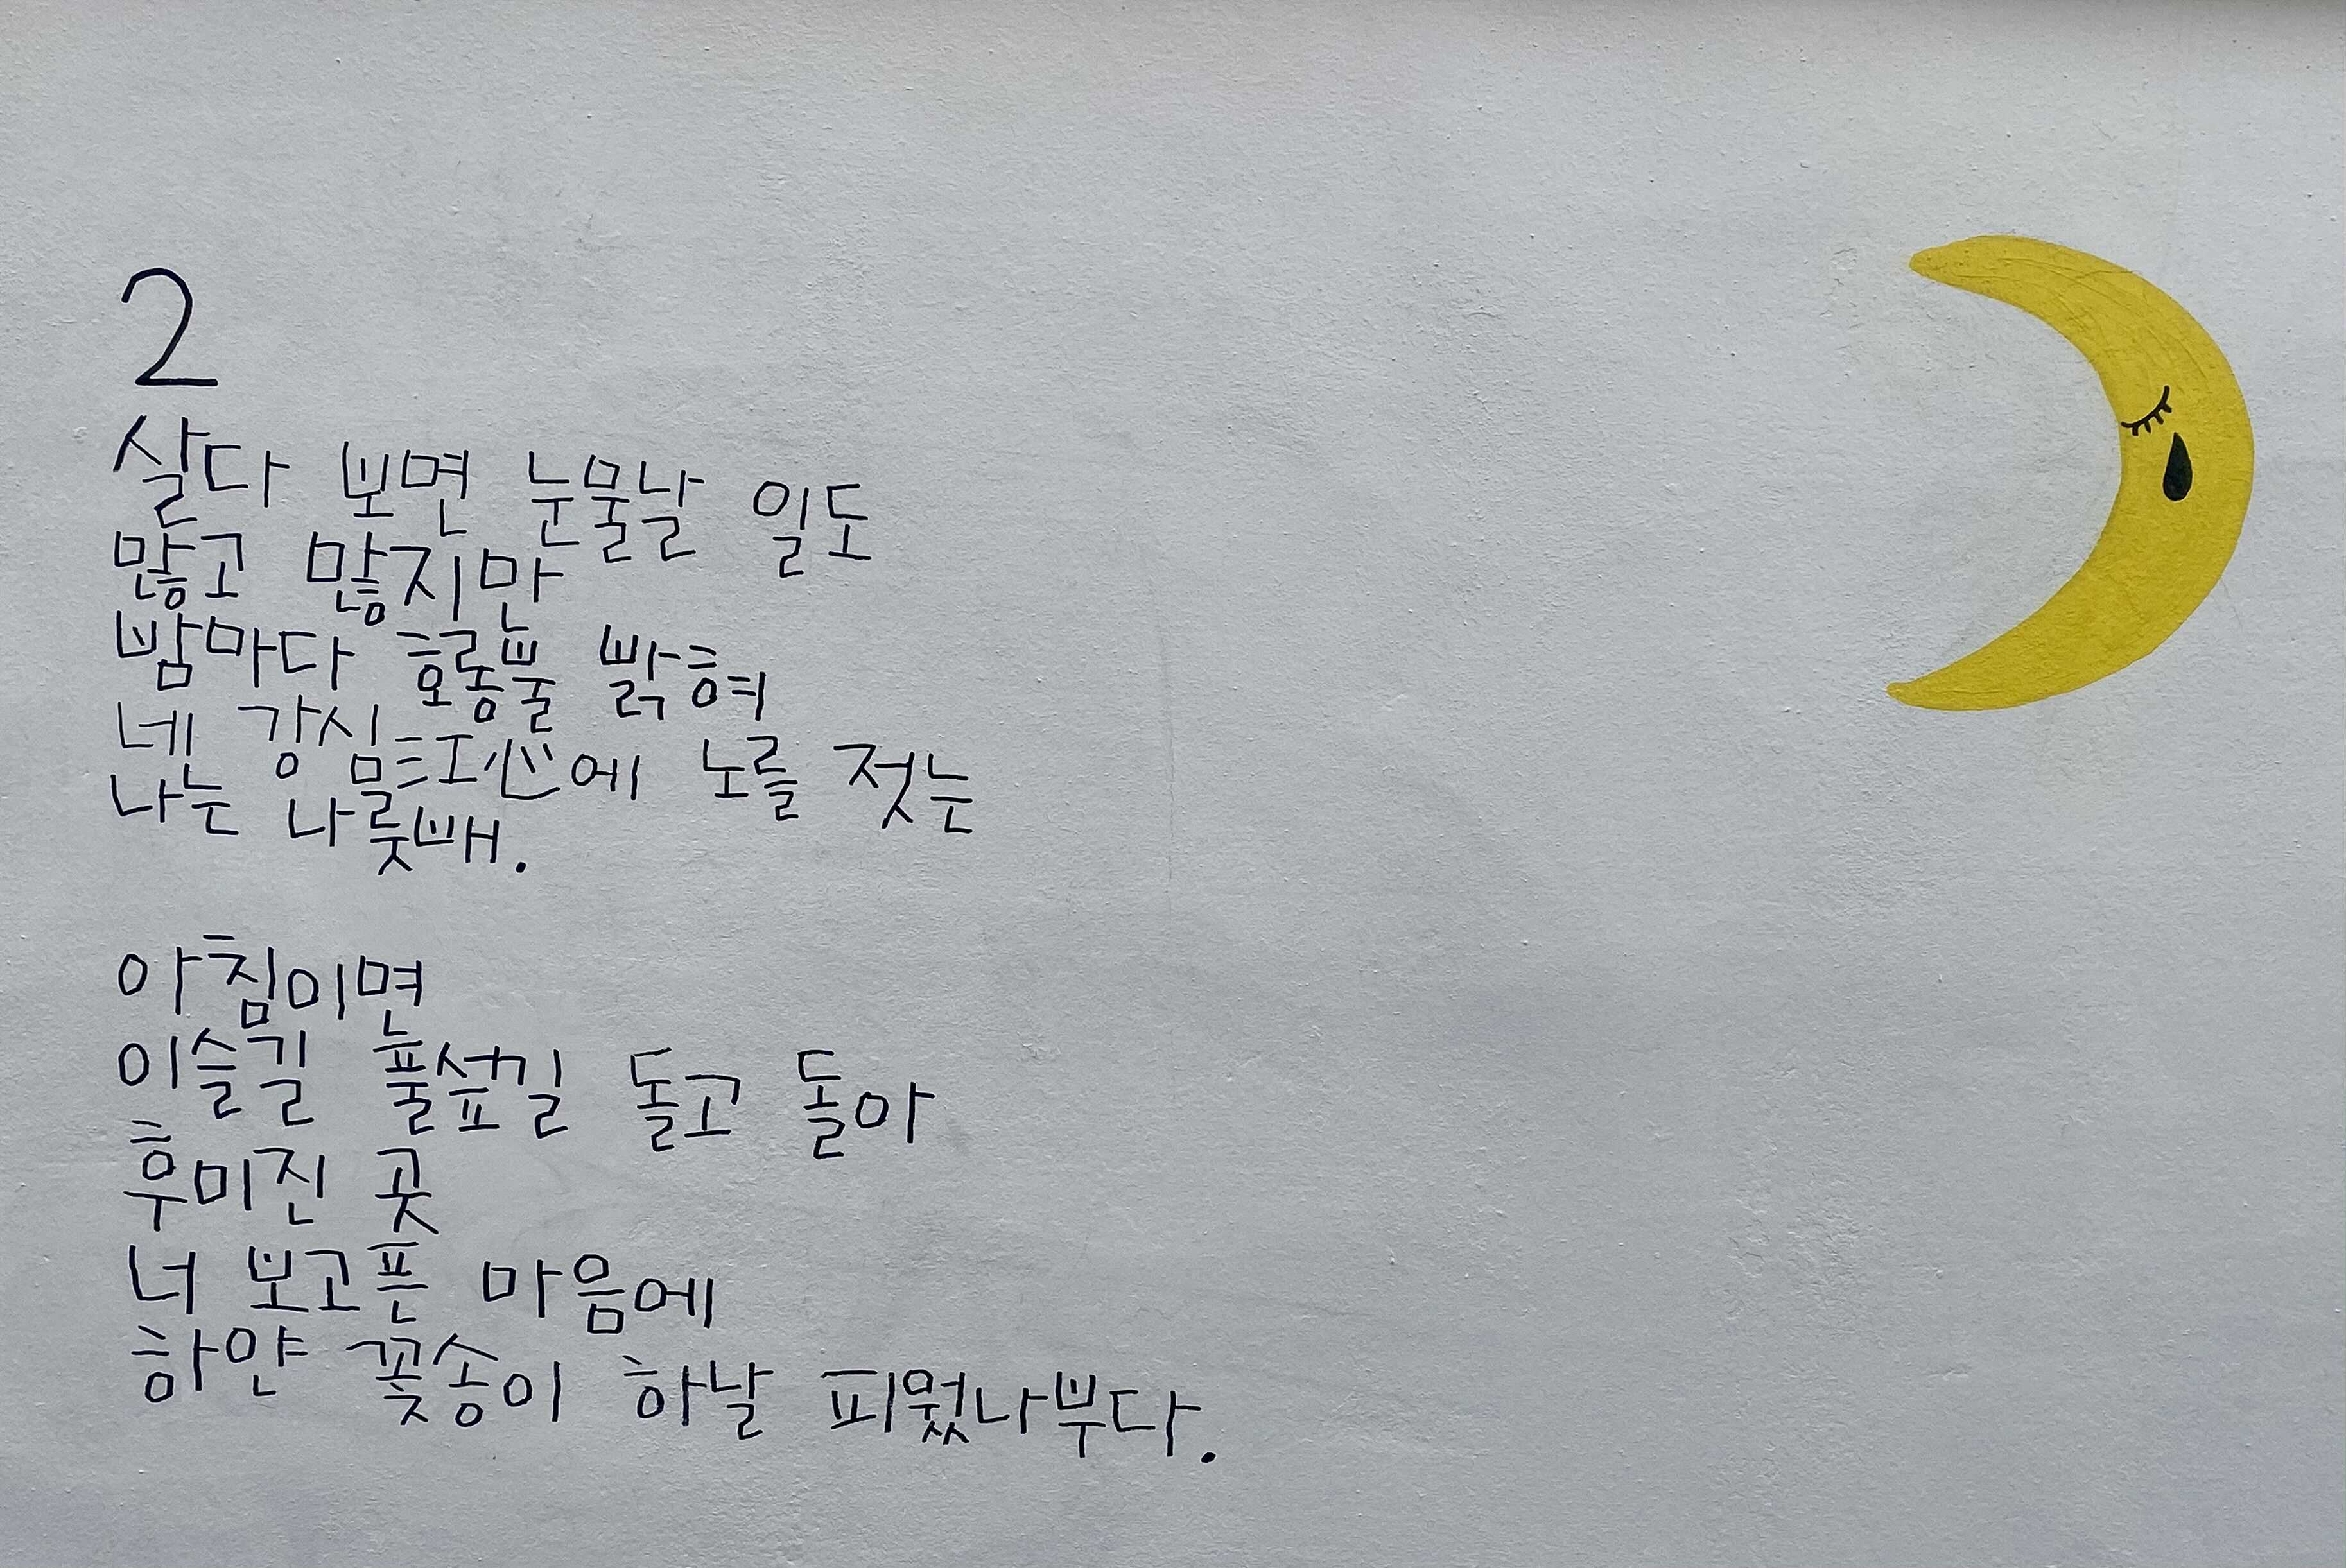 2
살다 보면 눈물날 일도
많고 많지만
밤마다 호롱불 밝혀
네 강심江心에 노를 젓는
나는 나룻배.
아침이면
이슬길 풀섶길 돌고 돌아
후미진 곳
너 보고픈 마음에
하얀 꽃송이 하날 피웠나부다.